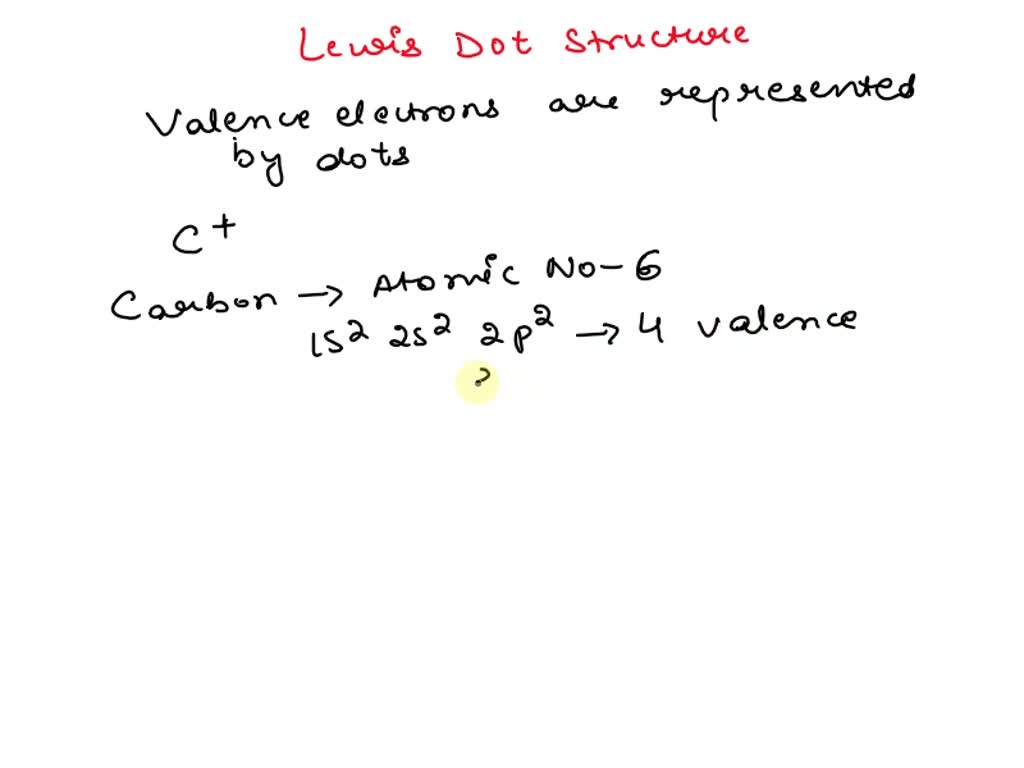 Lewis Dot Structure
Valence electrons are represented
by dots
C⁺
Carbon → Atomic No-6
1s² 2s² 2p² → 4 valence
?